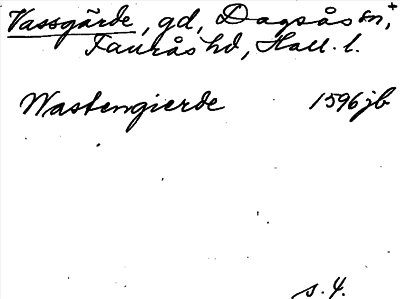 Vassgärde, gd, Dagsås sn,+
Faurås hd, Hall. l.
Wastengierde 1596 jb
s. 4.